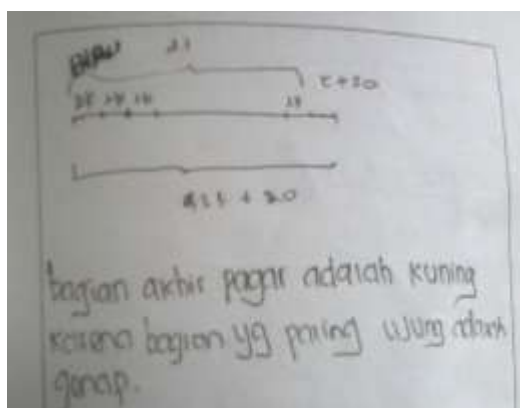 Biru 21
2x 2x 2x 2x x+20
21x + 20
bagian akhir pagar adalah kuning
karena bagian yg paling ujung adalah
genap.